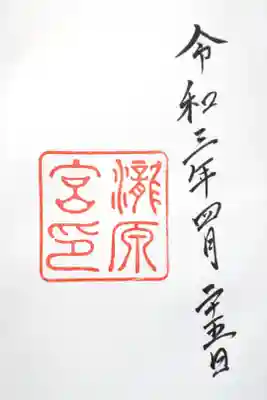 令和三年四月二十五日
瀧原
宮印